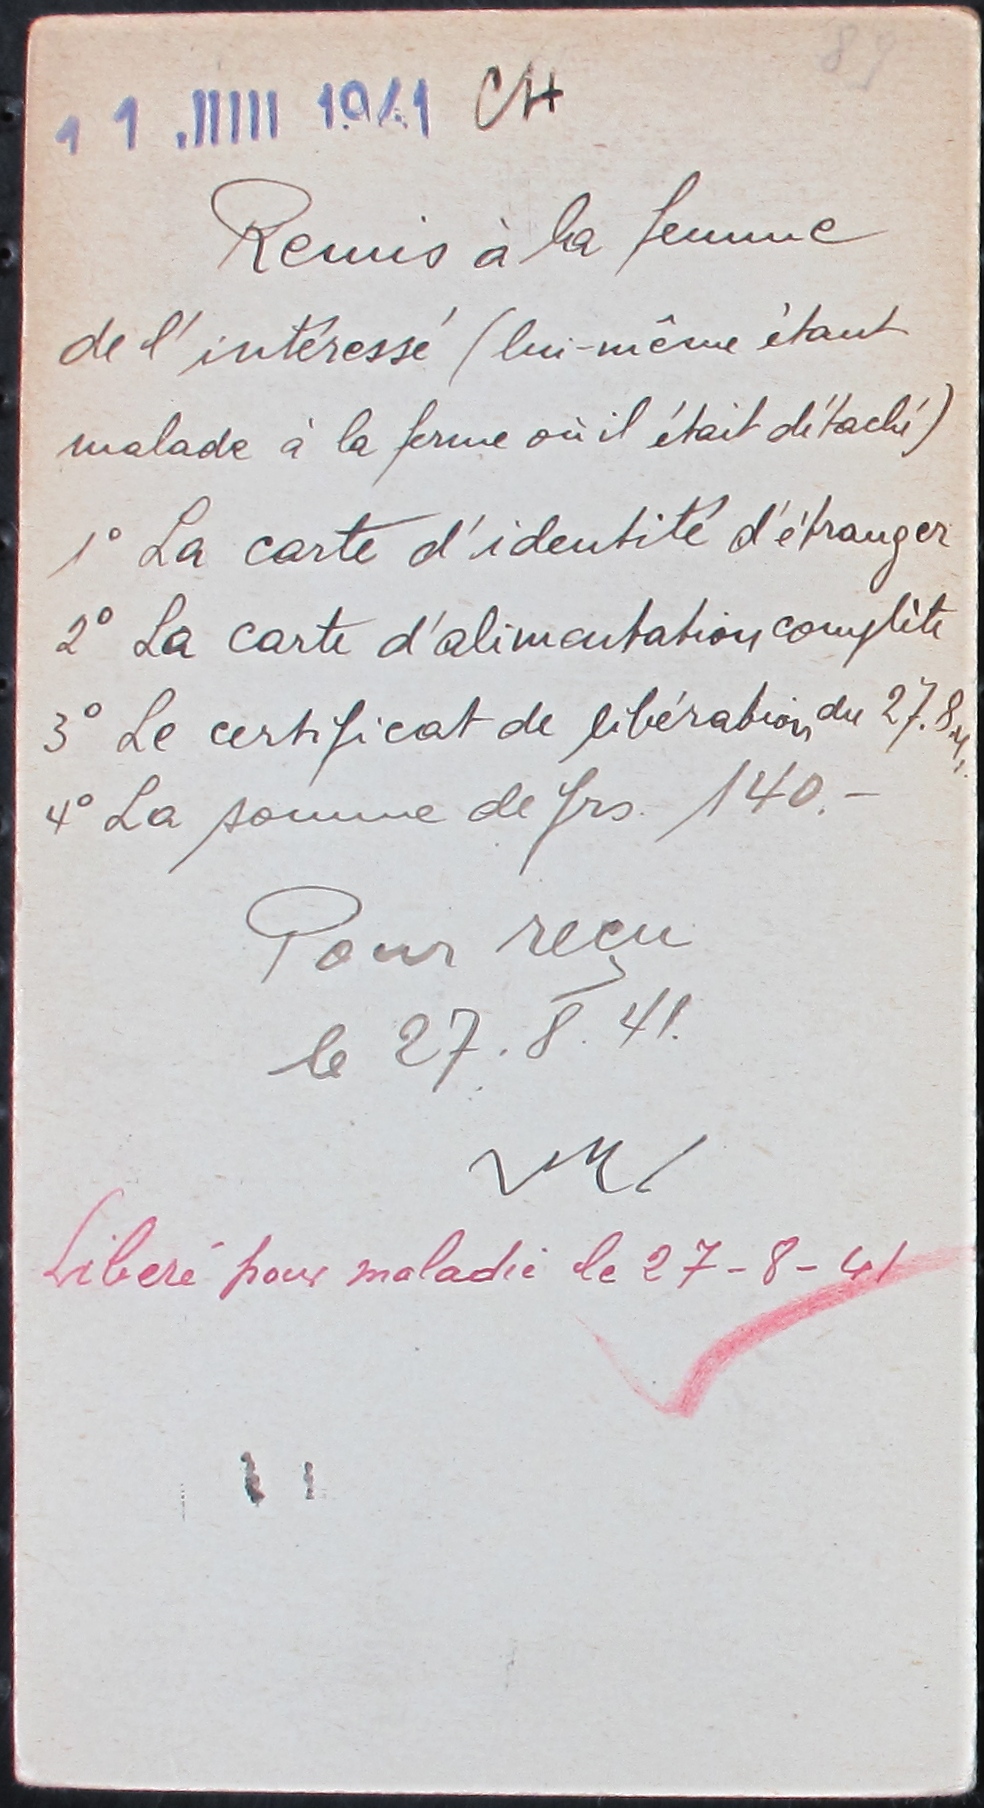 11 JUIN 1941 CH
Remis à la femme
de l'intéressé (lui-même étant
malade à la ferme où il était détaché)
1° La carte d'identité d'étranger
2° La carte d'alimentation complète
3° Le certificat de libération du 27.8.41.
4° La somme de frs. 140.-
Pour reçu
le 27.8.41.
Liberé pour maladie le 27-8-41